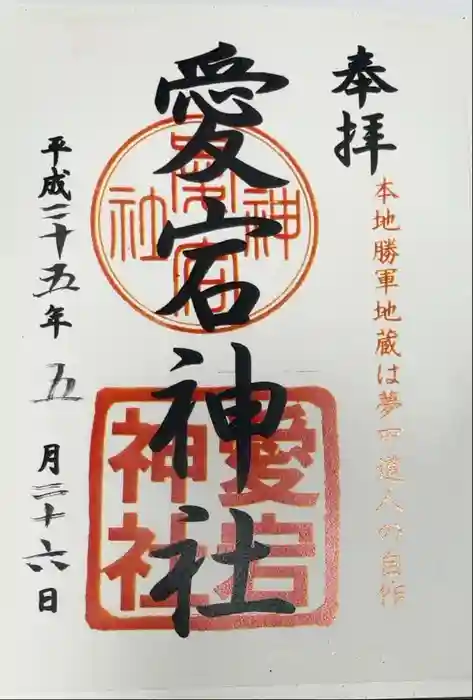 奉拝
本地勝軍地蔵は夢 道人の自作
愛宕神社
愛宕神社
愛宕神社
平成二十五年五月二十六日